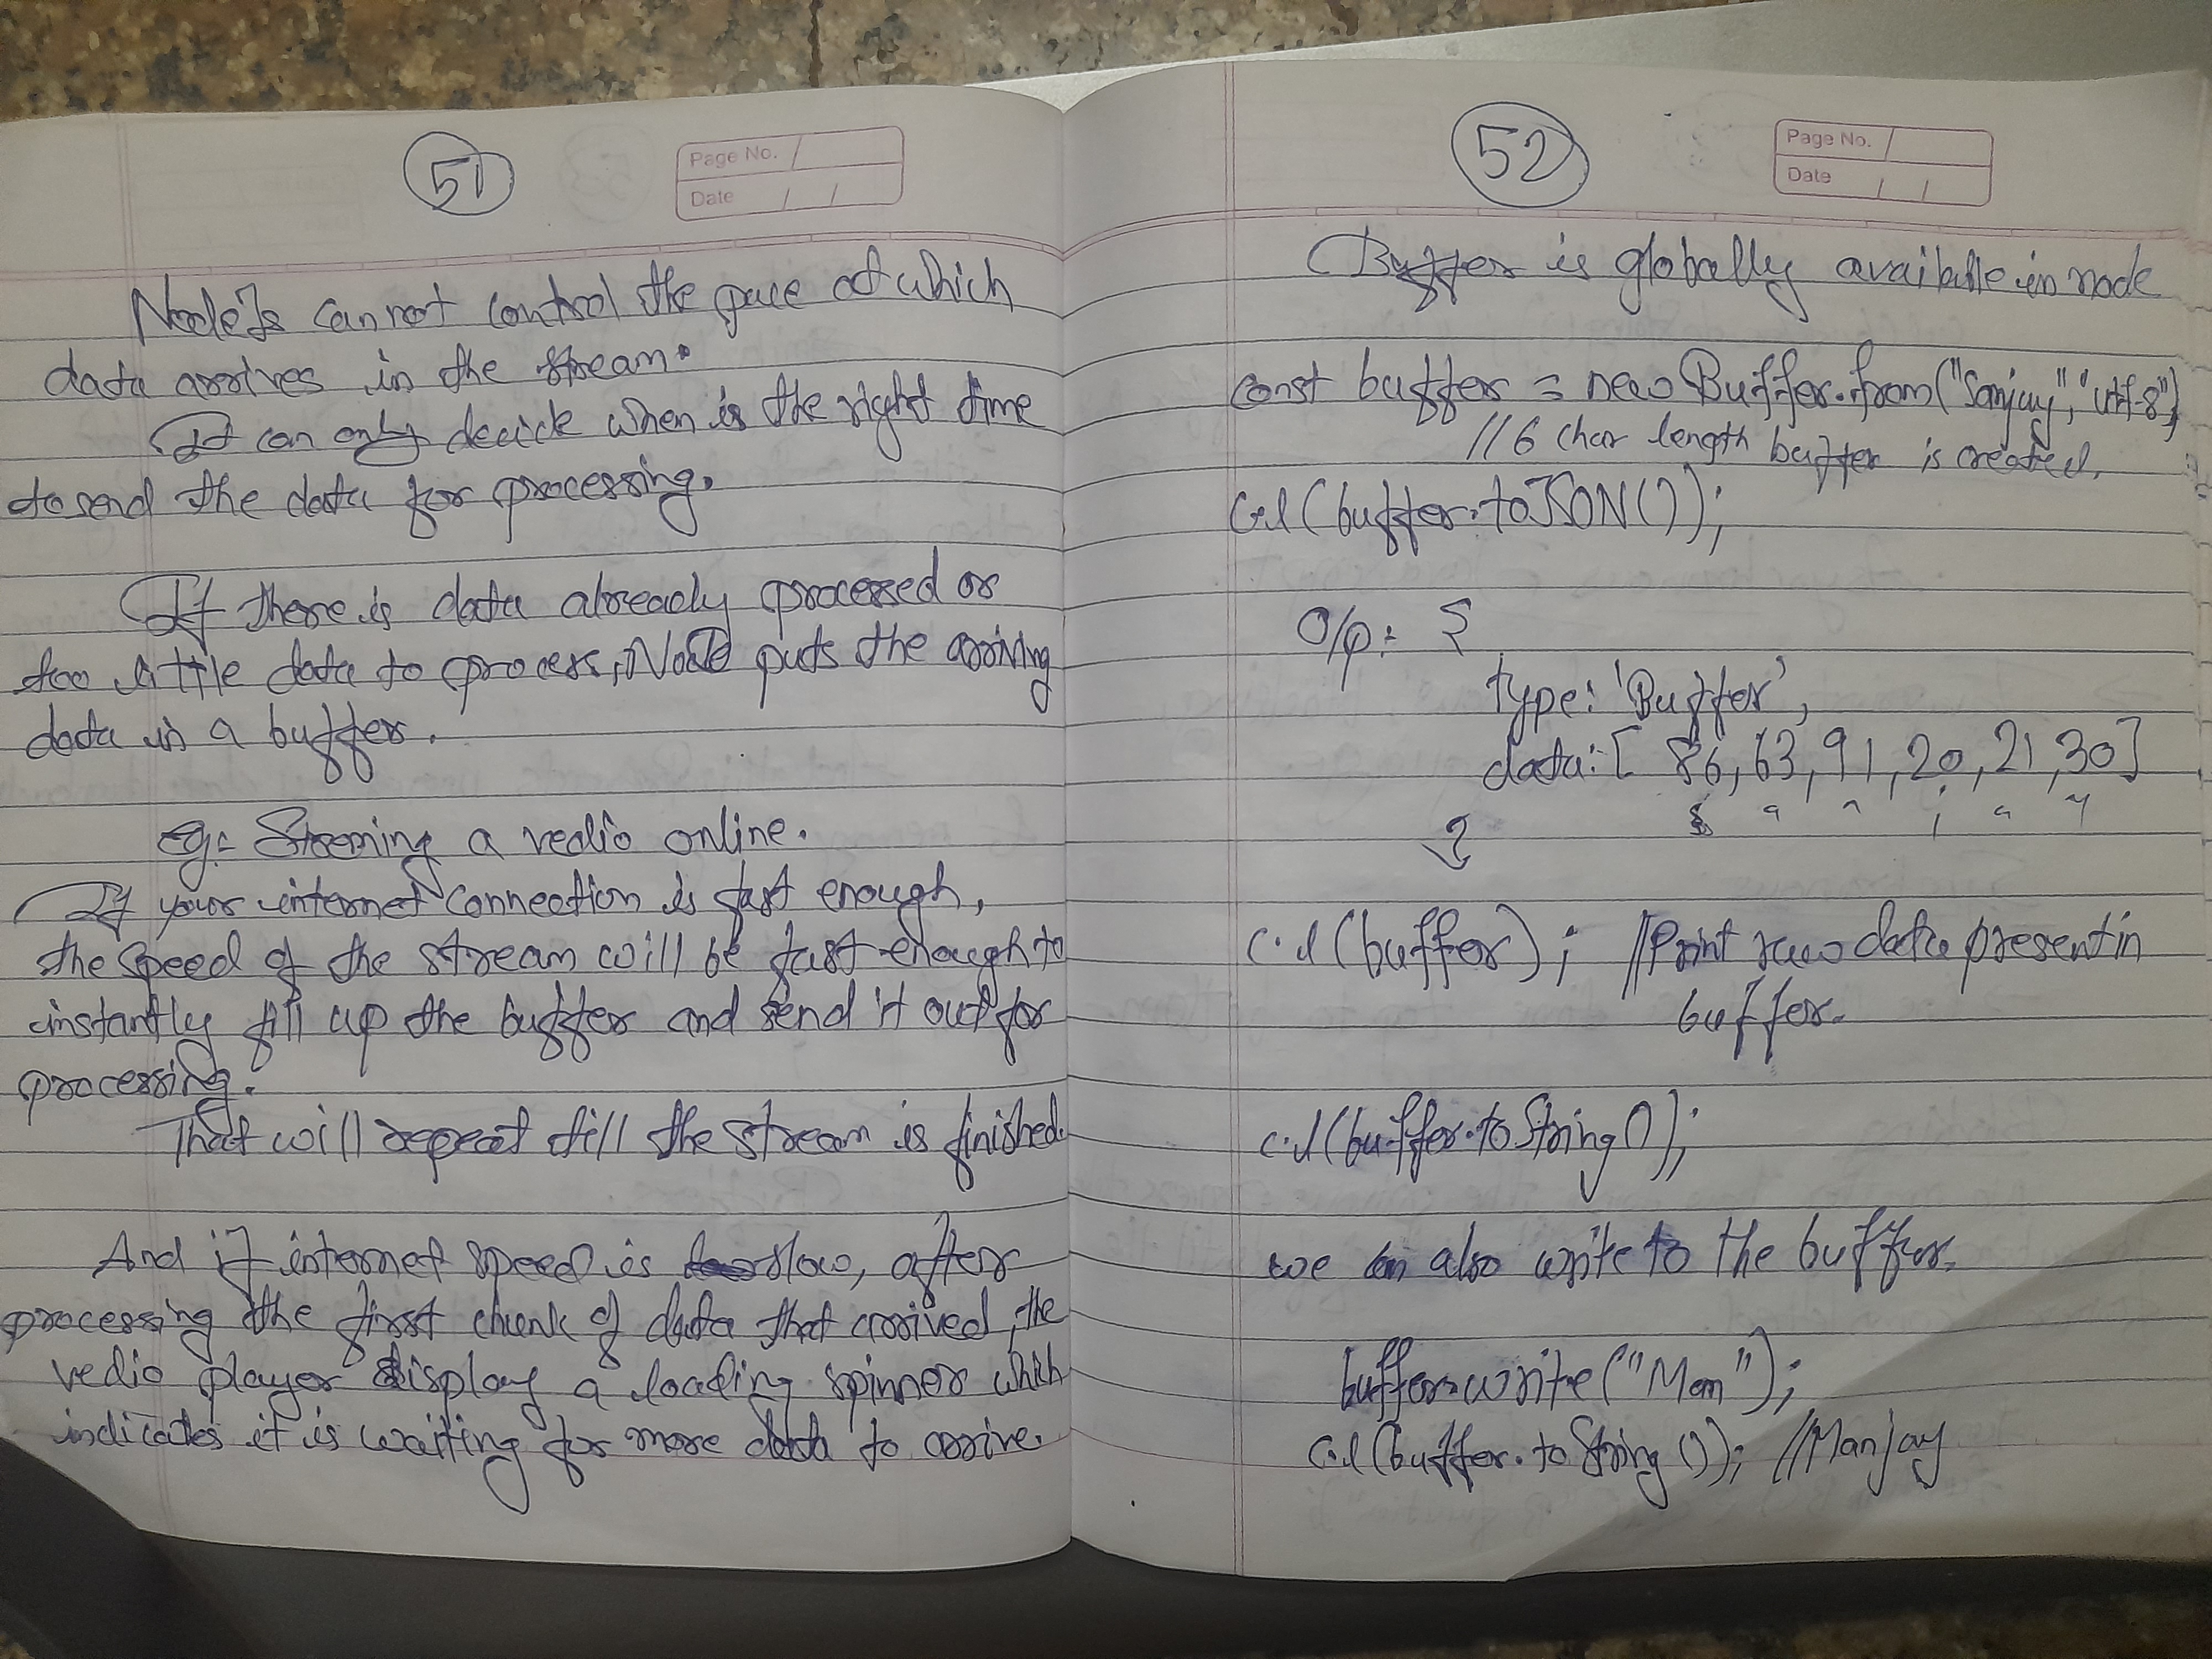 51
Page No.
Date / /
NodeJs cannot control the pace at which
data arrives in the stream.
It can only decide when is the right time
to send the data for processing.
If there is data already processed or
too little data to process, Node puts the arriving
data in a buffer.
eg:- Streming a vedio online.
If your internet connection is fast enough,
the speed of the stream will be fast enough to
instantly fill up the buffer and send it out for
processing.
That will repeat till the stream is finished.
And if internet speed is slow, after
processing the first chunk of data that arrived, the
vedio player display a loading spinner which
indicates it is waiting for more data to arrive.
52
Page No.
Date / /
Buffer is globally available in node
const buffer = new Buffer.from("Sanjay", "utf-8")
//6 char length buffer is created.
c.l(buffer.toJSON());
O/p:- {
type: 'Buffer',
data: [ 86, 63, 91, 20, 21, 30]
S a n j a y
}
c.l(buffer); //Print raw data present in
buffer.
c.l(buffer.toString());
we can also write to the buffer.
buffer.write("Man");
c.l(buffer.toString()); //Manjay